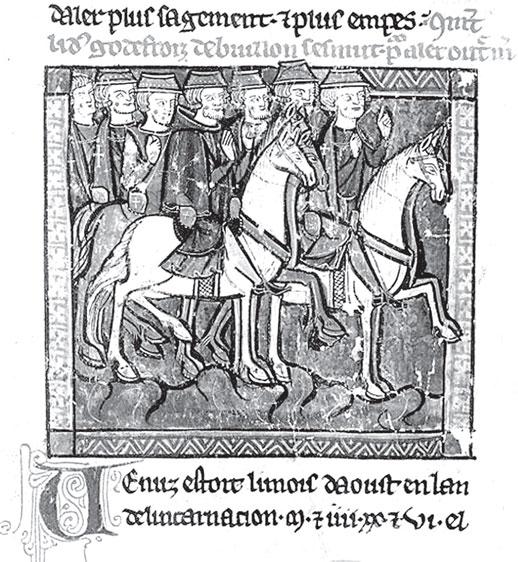 daler plus sagement · ⁊ plus empes ·
godefroiz de buillon sesmut · aler
Uenuz estoit li mois daoust en lan
de lincarnacion · M · ⁊ iiii · xx · ⁊ vi · el